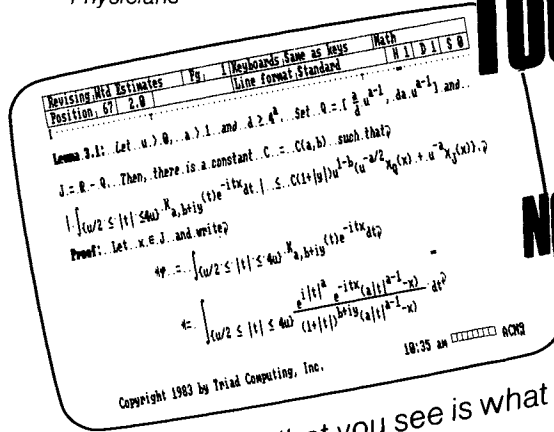 Physicians
TOU
Revising:Mtd Estimates | Pg: 1 | Keyboards:Same as keys | Math
Position: 67 | 2.0 | Line format:Standard | N 1 | D 1 | S 0
Lemma.3.1:..Let..u.>.0,..a.>.1..and..d.≥.4ᵃ...Set..Q.=.[ a/d uᵃ⁻¹, da.uᵃ⁻¹].and..
J.=.R.-.Q...Then,.there.is.a.constant..C..=..C(a,b)..such.that
|.∫{u/2.≤.|t|.≤4u}.K a,b+iy(t)e⁻ⁱᵗˣdt.|..≤..C(1+|y|)u¹⁻ᵇ(u⁻ᵃ/²χQ(x).+.u⁻ᵃχJ(x)).
Proof:..Let..x.∈.J..and.write
..=..∫{u/2.≤.|t|.≤.4u}.K a,b+iy(t)e⁻ⁱᵗˣdt
=.∫{u/2.≤.|t|.≤.4u} e^{i|t|ᵃ}.e⁻ⁱᵗˣ(a|t|ᵃ⁻¹-x) / (1+|t|)ᵇ⁺ⁱʸ(a|t|ᵃ⁻¹-x) .dt
10:35 am ACM9
Copyright 1983 by Triad Computing, Inc.
NO
that you see is what